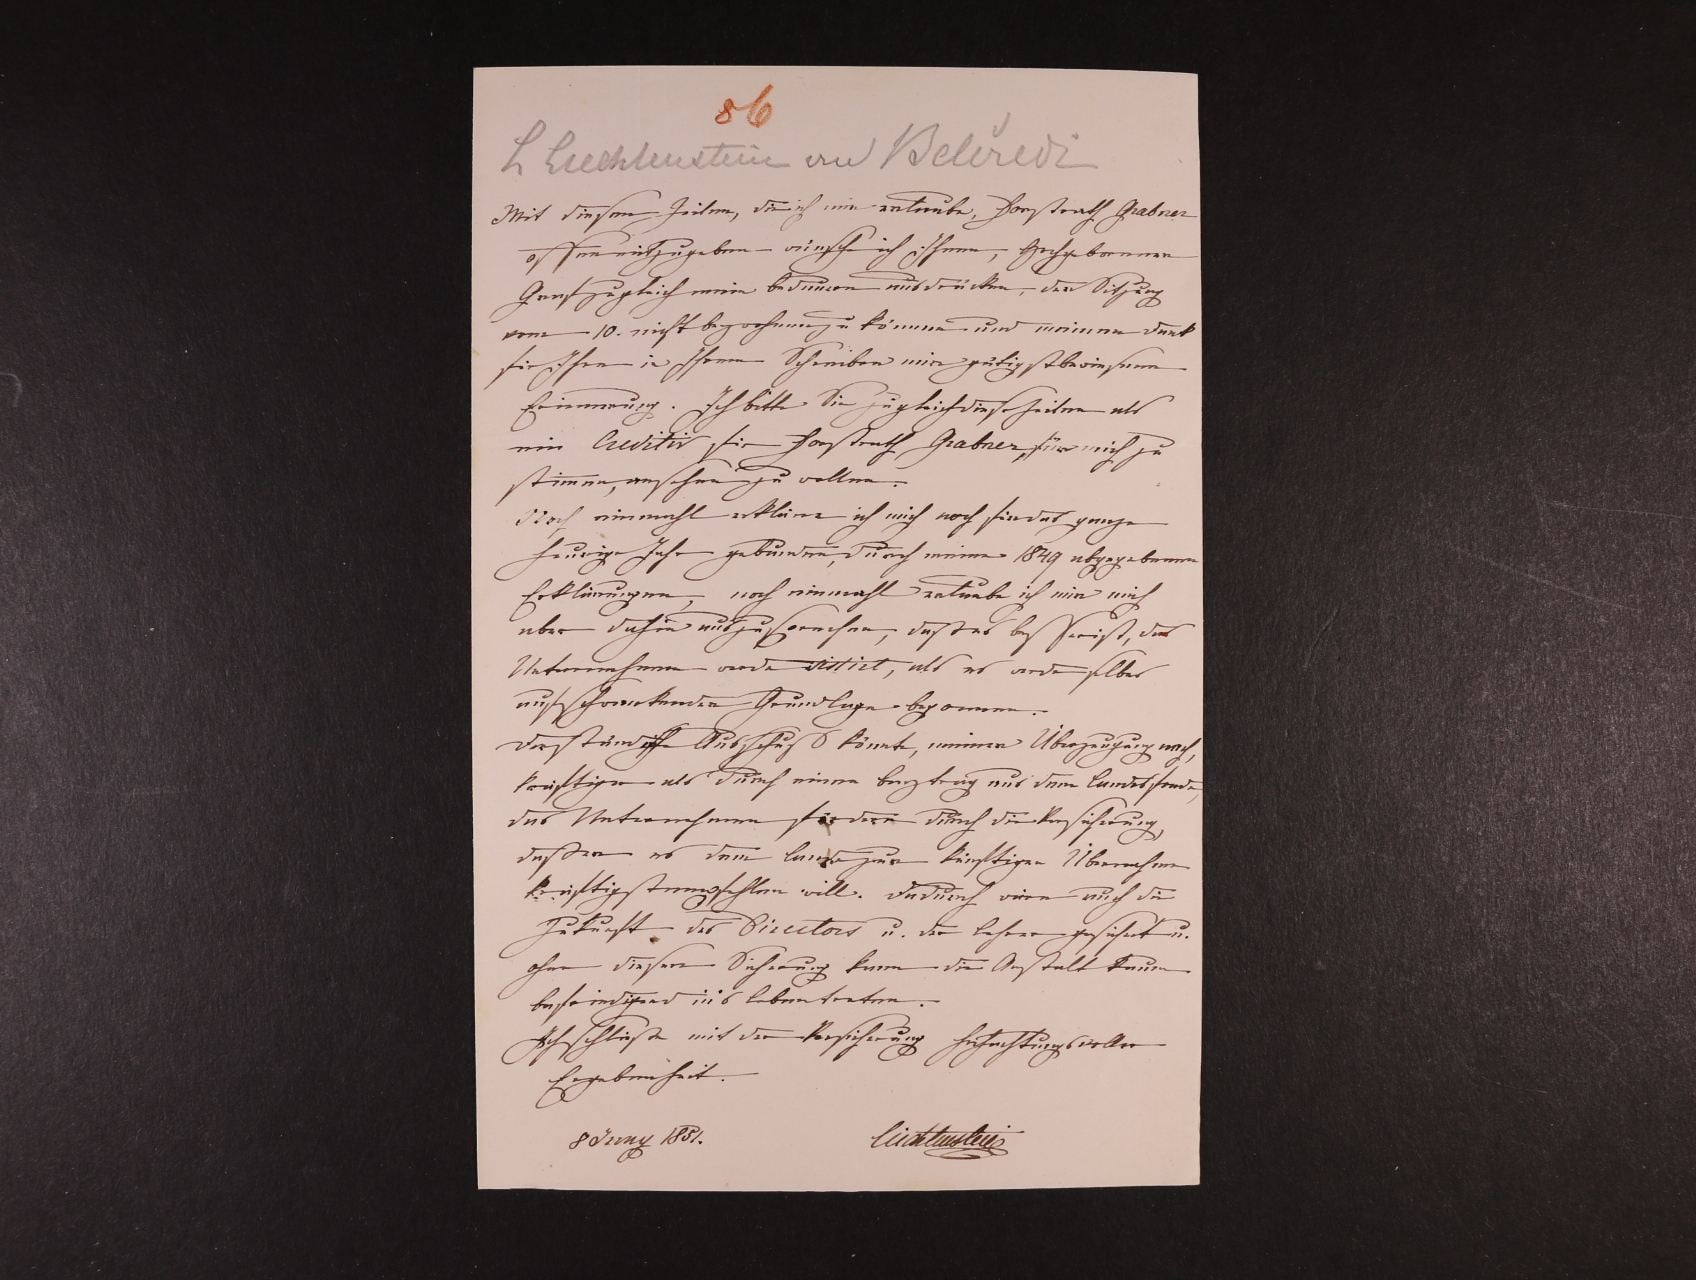 86
L Liechtenstein an Belcredi
Mit diesen Zeilen, die ich mir erlaube, Forstrath Grabner
offen mitzugeben wünsche ich Ihnen, Hochgeborener
Graf zugleich mein Bedauern auszudrücken, der Sitzung
vom 10. nicht beywohnen zu können und meinen Dank
für Ihre in Ihrem Schreiben mir gütigst bewiesene
Erinnerung. Ich bitte Sie zugleich diese Zeilen als
ein Creditiv für Forstrath Grabner, für mich zu
stimmen, ansehen zu wollen.
Noch einmahl erkläre ich mich noch für das ganze
heurige Jahr gebunden, durch meine 1849 abgegebenen
Erklärungen, noch einmahl erlaube ich mir mich
aber dahin auszusprechen, daß es besser ist, das
Unternehmen werde sistiert, als es werde selbes
auf schwankender Grundlage begonnen.
Der ständische Ausschuß könnte, meiner Überzeugung nach,
kräftiger als durch einen Beytrag aus dem Landesfonde,
das Unternehmen fördern durch die Versicherung,
daß er es dem Lande zur künftigen Übernahme
kräftigst empfehlen will. Dadurch wäre auch die
Zukunft des Directors u. der Lehrer gesichert u.
ohne dieser Sicherung kann die Anstalt kaum
befriedigend ins Leben treten.
Ich schließe mit der Versicherung hochachtungsvoller
Ergebenheit.
8 Juny 1851.
Liechtenstein